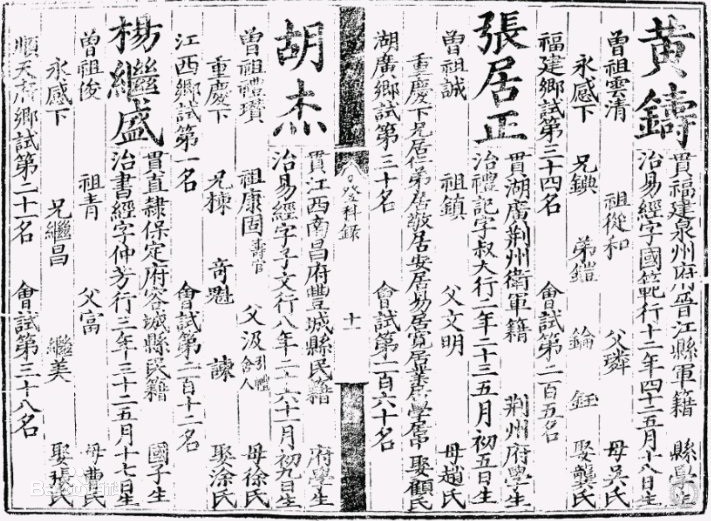 黃鑄
貫福建泉州府晉江縣軍籍 縣學生
治易經字國範行十二年四十二五月十八日生
曾祖雲清 祖從和 父璘 母吳氏
永感下 兄鐭 弟鎧 鑰 鈺 娶龔氏
福建鄉試第三十四名 會試第二百五名
張居正
貫湖廣荊州衛軍籍 荊州府學生
治禮記字叔大行二年二十三五月初五日生
曾祖誠 祖鎮 父文明 母趙氏
重慶下兄居仁弟居敬居安居易居寬居 娶顧氏
湖廣鄉試第三十名 會試第二百六十名
登科錄
十一
胡杰
貫江西南昌府豐城縣民籍 府學生
治易經字子文行八年二十六十一月初九日生
曾祖禮瓚 祖康固壽官 父汲引禮舍人 母徐氏
重慶下 兄棟 奇魁 諫 娶涂氏
江西鄉試第一名 會試第二百十二名
楊繼盛
貫直隸保定府容城縣民籍 國子生
治書經字仲芳行三年三十二五月十七日生
曾祖俊 祖青 父富 母曹氏
永感下 兄繼昌 繼美 娶張氏
順天府鄉試第二十二名 會試第三十八名